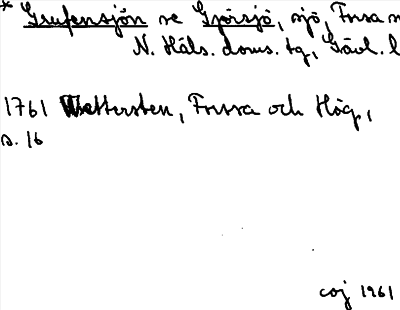 * Grufensjön se Gjörsjö, sjö, Forsa
N. Häls. doms. tg, Gävl. l
1761 Wettersten, Forssa och Hög,
s. 16
coj 1961